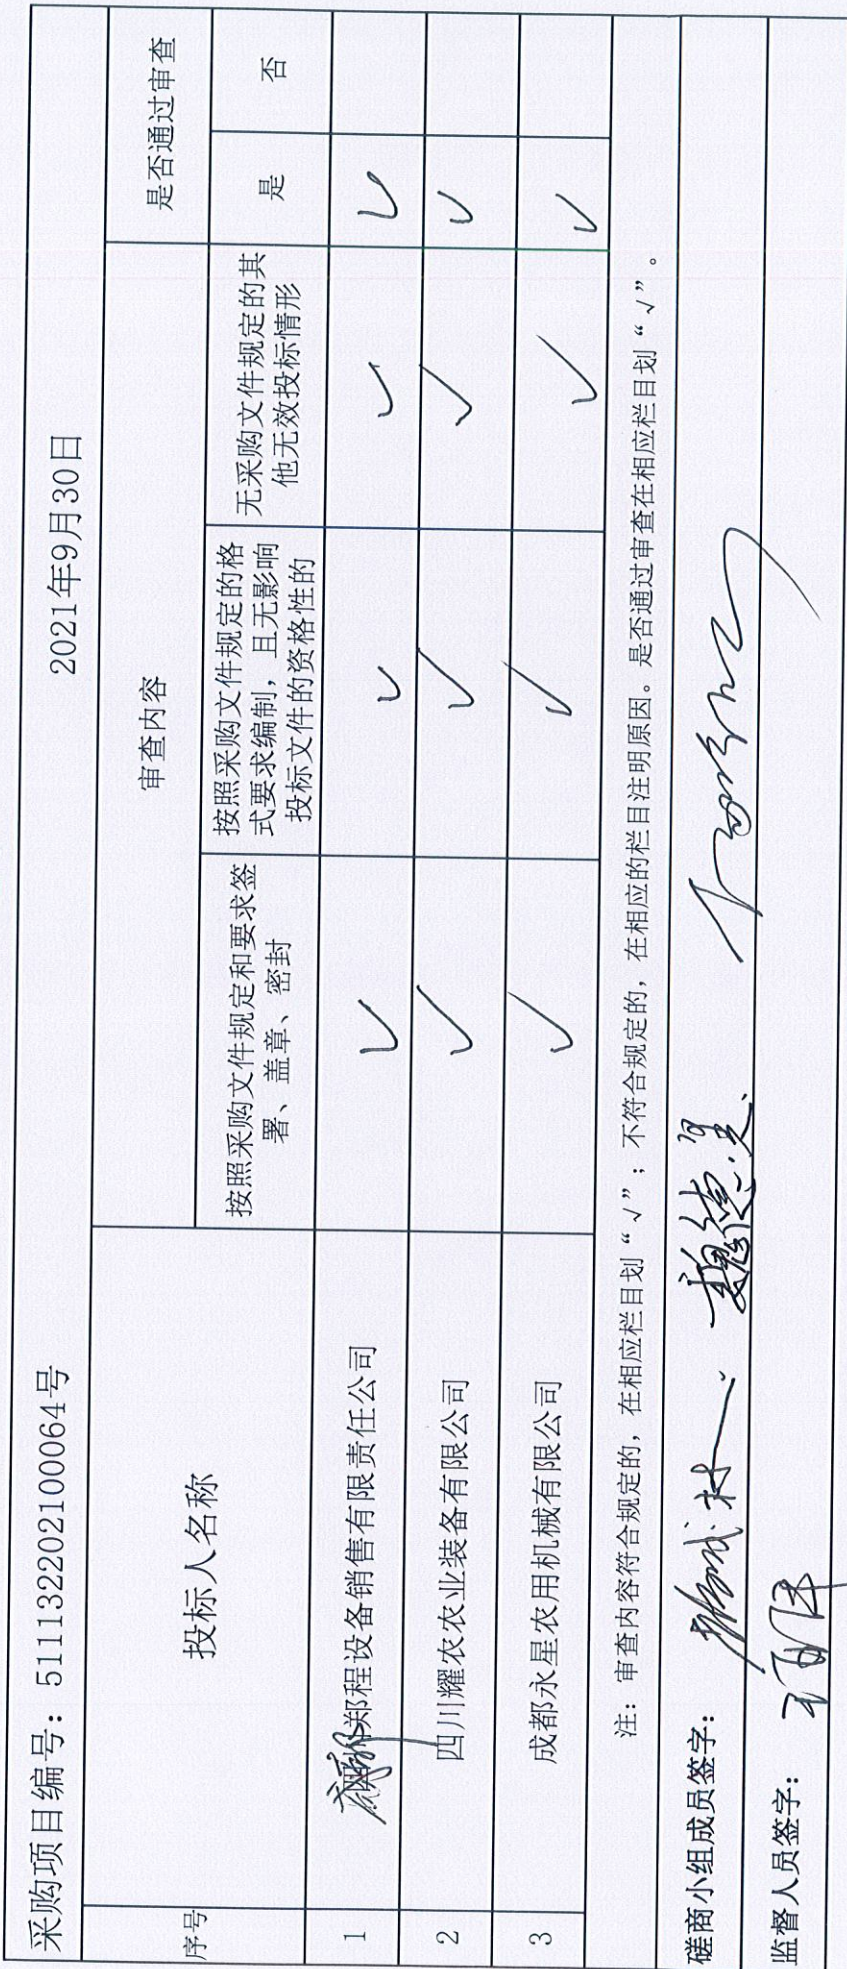 采购项目编号：511132202100064号 2021年9月30日
序号 投标人名称 审查内容 是否通过审查
按照采购文件规定和要求签
署、盖章、密封
按照采购文件规定的格
式要求编制，且无影响
投标文件的资格性的
无采购文件规定的其
他无效投标情形
是 否
1 郑程设备销售有限责任公司 ✓ ✓ ✓ ✓
2 四川耀农农业装备有限公司 ✓ ✓ ✓ ✓
3 成都永星农用机械有限公司 ✓ ✓ ✓ ✓
注：审查内容符合规定的，在相应栏目划“√”；不符合规定的，在相应的栏目注明原因。是否通过审查在相应栏目划“√”。
磋商小组成员签字：
监督人员签字：